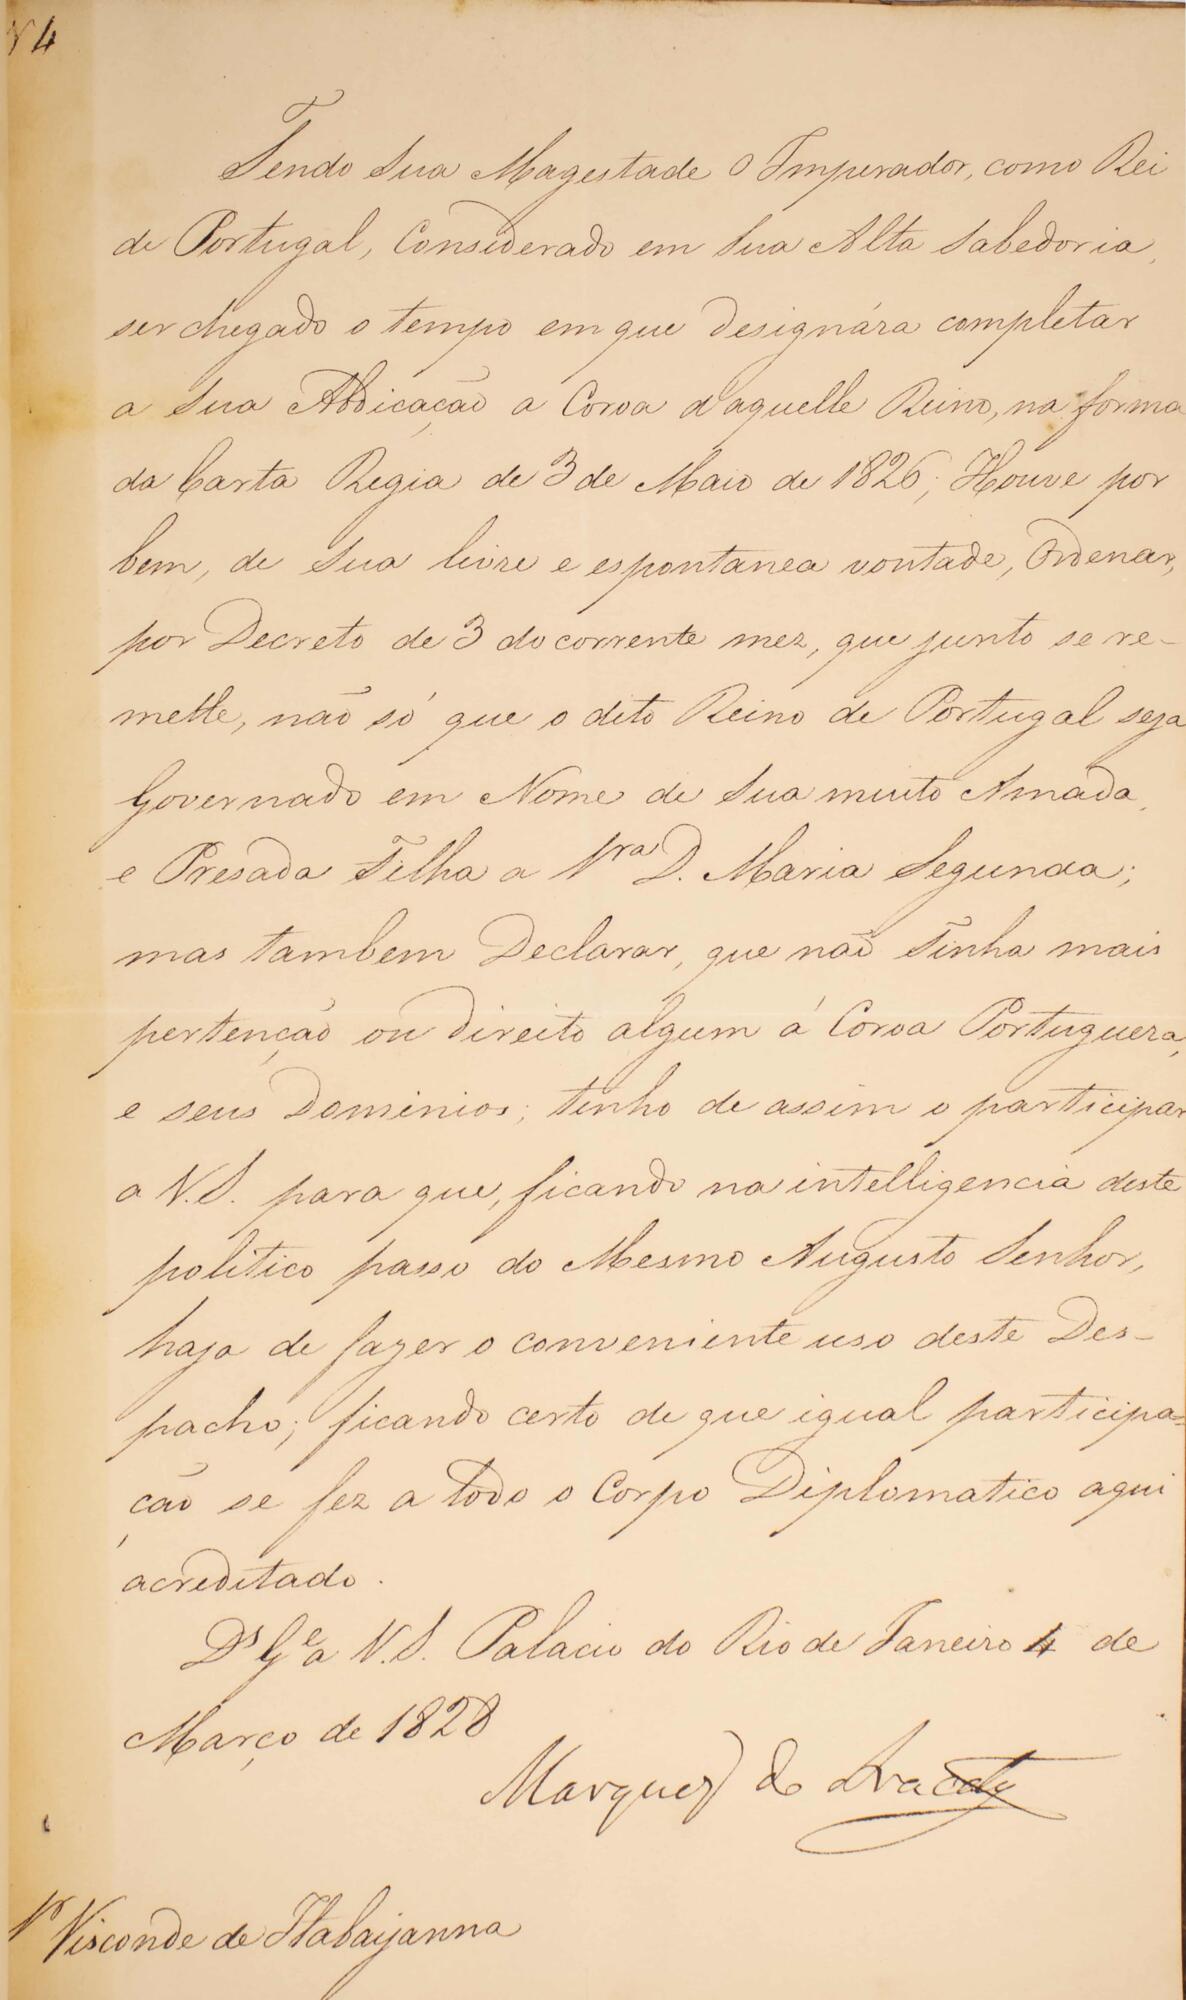 N 4
Tendo Sua Magestade o Imperador, como Rei
de Portugal, Considerado em Sua Alta Sabedoria,
ser chegado o tempo em que designára completar
a Sua Abdicação a Coroa d'aquelle Reino, na forma
da Carta Regia de 3 de Maio de 1826; Houve por
bem, de Sua livre e espontanea vontade, Ordenar,
por Decreto de 3 do corrente mez, que junto se re-
mette, não só que o dito Reino de Portugal seja
Governado em Nome de Sua muito Amada,
e Presada Filha a Sra D. Maria Segunda;
mas tambem Declarar, que não Tinha mais
pertenção ou direito algum á Coroa Portugueza,
e seus Dominios; tenho de assim o participar
a V.S. para que, ficando na intelligencia deste
politico passo do Mesmo Augusto Senhor,
haja de fazer o conveniente uso deste Des-
pacho; ficando certo de que igual participa=
ção se fez a todo o Corpo Diplomatico aqui
acreditado.
Ds Ge a V.S. Palacio do Rio de Janeiro 4 de
Março de 1828
Marquez de Aracaty
Sr Visconde de Itabaijanna